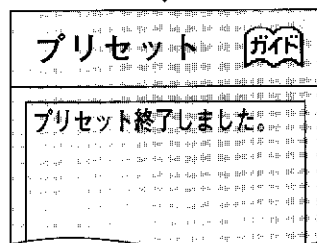 プリセット ガイド
プリセット終了しました。